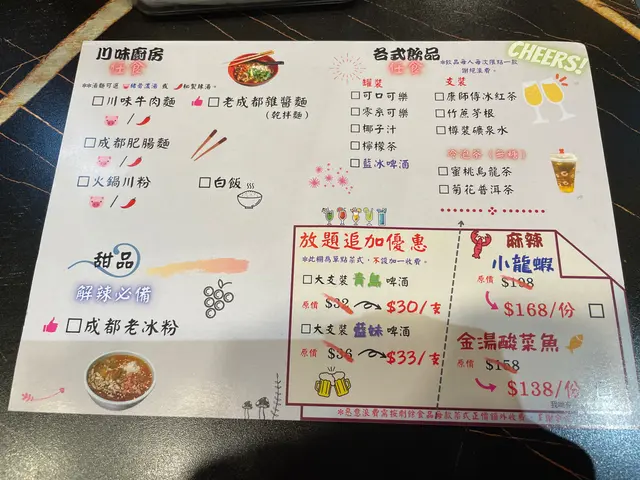 川味廚房
任食
**湯麵可選🐷豬骨濃湯 或 🌶秘製辣湯。
□川味牛肉麵
🐷/🌶
👍□老成都雜醬麵
(乾拌麵)
□成都肥腸麵
🐷/🌶
□火鍋川粉
🐷/🌶
□白飯
甜品
解辣必備
👍□成都老冰粉
各式飲品
任食
*飲品每人每次限點一款
謝絕浪費。
CHEERS!
罐裝
□可口可樂
□零系可樂
□椰子汁
□檸檬茶
□藍冰啤酒
支裝
□康師傅冰紅茶
□竹蔗茅根
□樽裝礦泉水
冷泡茶(無糖)
□蜜桃烏龍茶
□菊花普洱茶
放題追加優惠
*此欄為單點菜式,不設加一收費。
□大支裝 青島 啤酒
原價 $32 $30/支
□大支裝 藍妹 啤酒
原價 $36 $33/支
麻辣
小龍蝦
原價 $198
$168/份 □
金湯酸菜魚
原價 $158
$138/份